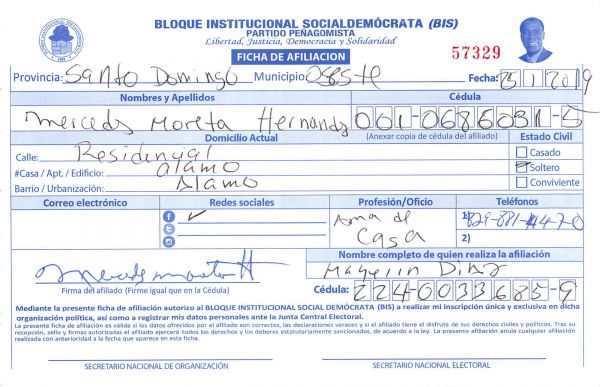 BLOQUE INSTITUCIONAL SOCIALDEMÓCRATA (BIS)
PARTIDO PEÑAGOMISTA
Libertad, Justicia, Democracia y Solidaridad
FICHA DE AFILIACION
57329
Provincia: Santo Domingo Municipio Oeste Fecha: 25/1/2019
Nombres y Apellidos Cédula
Mercedes Moreta Hernandz 001-0686031-5
Domicilio Actual (Anexar copia de cédula del afiliado) Estado Civil
Calle: Residencial Casado
#Casa / Apt. / Edificio: alamo Soltero
Barrio / Urbanización: Alamo Conviviente
Correo electrónico Redes sociales Profesión/Oficio Teléfonos
Ama de Casa
1) 829-881-4470
2)
Nombre completo de quien realiza la afiliación
Mayelin Diaz
Firma del afiliado (Firme igual que en la Cédula)
Cédula: 224-0033685-9
Mediante la presente ficha de afiliación autorizo al BLOQUE INSTITUCIONAL SOCIAL DEMÓCRATA (BIS) a realizar mi inscripción única y exclusiva en dicha
organización política, así como a registrar mis datos personales ante la Junta Central Electoral.
La presente ficha de afiliación es válida si los datos ofrecidos por el afiliado son correctos, las declaraciones veraces y si el afiliado tiene el disfrute de sus derechos civiles y políticos. Tras su
recepción, sello y firmas autorizadas el afiliado ejercerá todos los derechos y los deberes estatutariamente sancionados, de acuerdo a la ley. La presente afiliación anula cualquier afiliación
realizada con anterioridad a la fecha que aparece en esta ficha.
SECRETARIO NACIONAL DE ORGANIZACIÓN SECRETARIO NACIONAL ELECTORAL